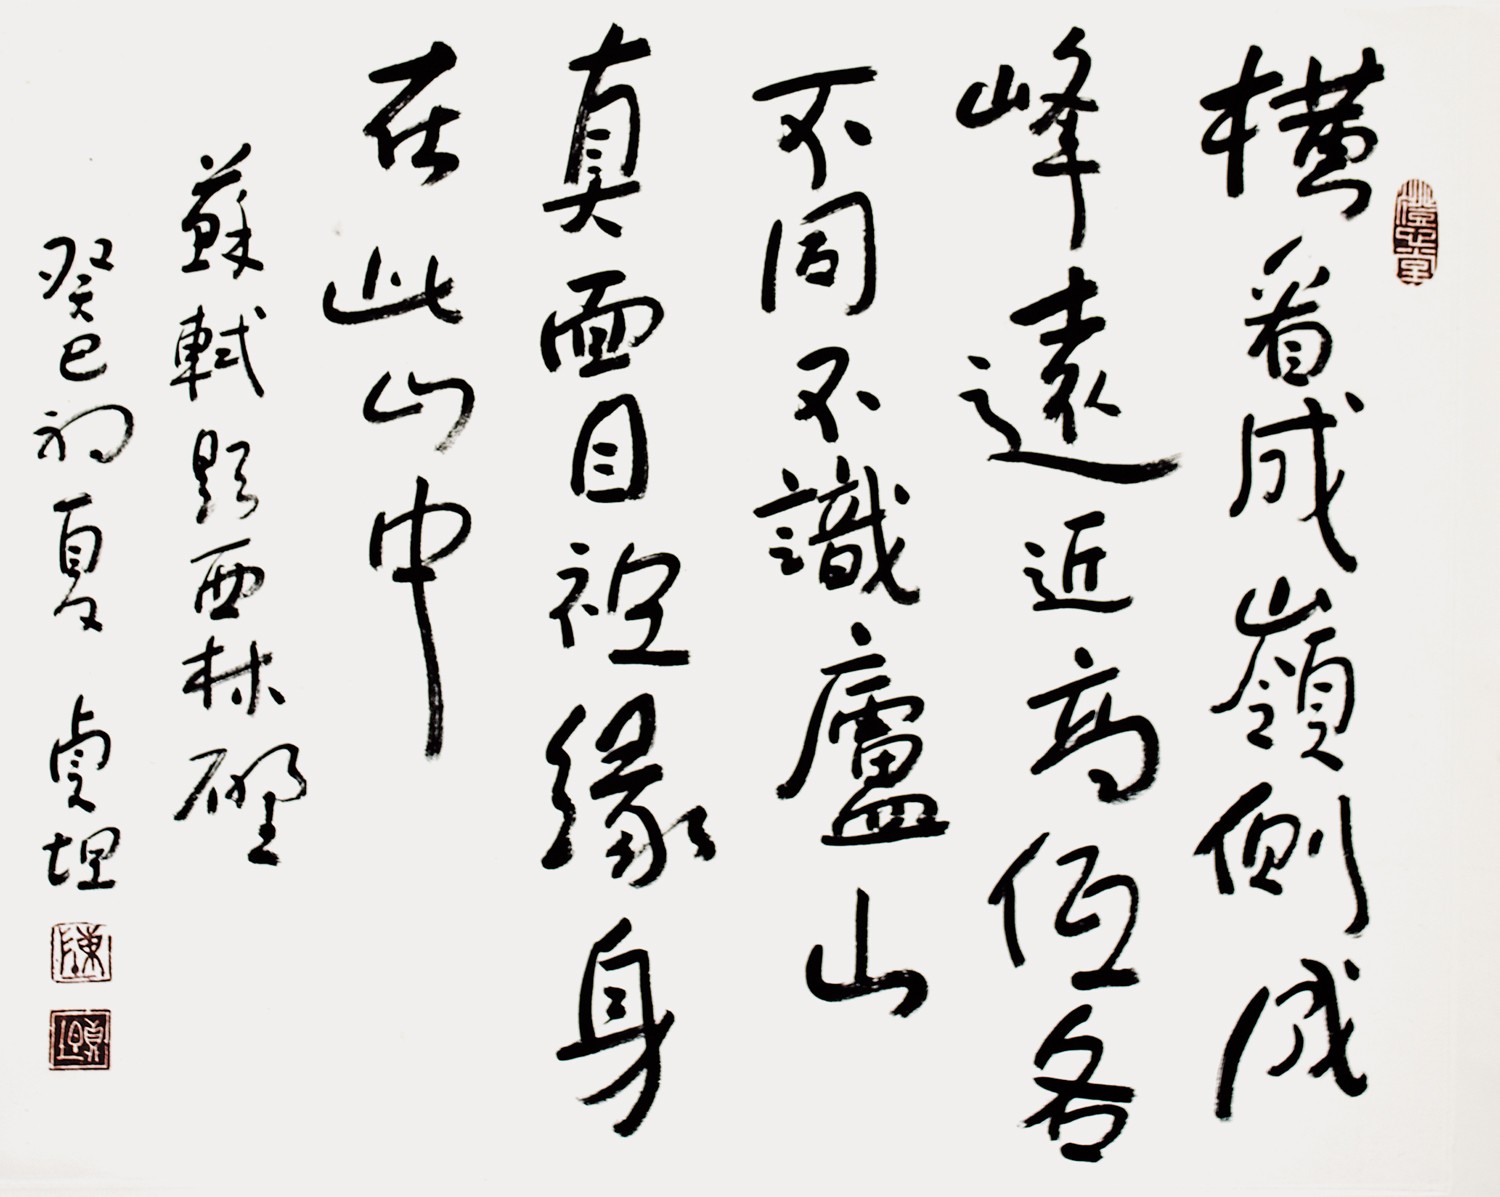 橫看成嶺側成
峰遠近高低各
不同不識廬山
真面目祇緣身
在此山中
蘇軾題西林壁
癸巳初夏 貞坦
陳